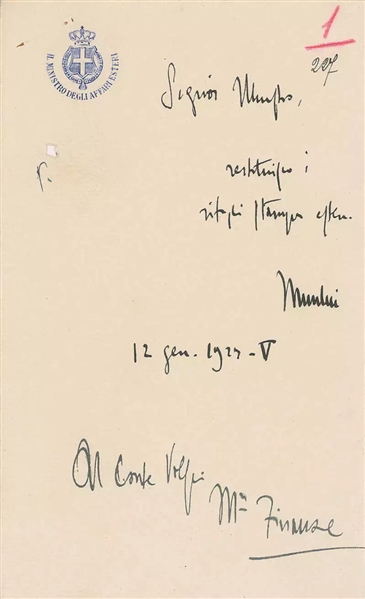 IL MINISTRO DEGLI AFFARI ESTERI
1
227
Signor Ministro,
restituisco i
ritagli stampa estera.
Mussolini
12 gen. 1927 - V
Al Conte Volpi
Mro Finanze